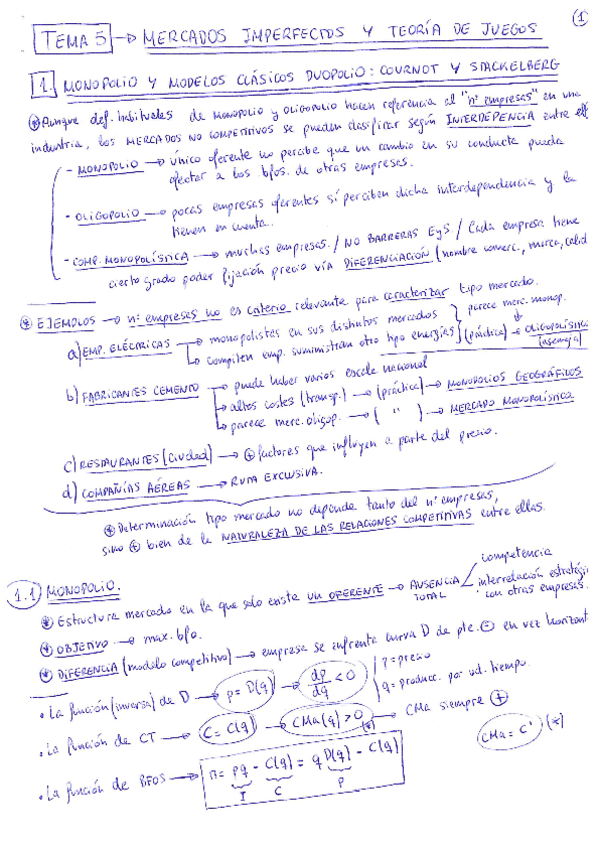 ①
TEMA 5 → MERCADOS IMPERFECTOS Y TEORÍA DE JUEGOS
1. MONOPOLIO Y MODELOS CLÁSICOS DUOPOLIO: COURNOT Y STACKELBERG
⊛ Aunque def. habituales de MONOPOLIO y OLIGOPOLIO hacen referencia al "nº empresas" en una
industria, los MERCADOS NO COMPETITIVOS se pueden clasificar según INTERDEPENCIA entre ell
- MONOPOLIO → único oferente no percibe que un cambio en su conducta pueda
afectar a los bfos. de otras empresas.
- OLIGOPOLIO → pocas empresas oferentes sí perciben dicha interdependencia y la
tienen en cuenta..
- COMP. MONOPOLÍSTICA → muchas empresas. / NO BARRERAS EyS / Cada empresa tiene
cierto grado poder fijación precio vía DIFERENCIACIÓN (nombre comerc., marca, calid
⊛ EJEMPLOS → nº empresas no es criterio relevante para caracterizar tipo mercado.
a) EMP. ELÉCTRICAS → monopolistas en sus distintos mercados } parece merc. monop.
→ compiten emp. suministran otro tipo energías } (práctica) → OLIGOPOLÍSTICO (asemeja)
b) FABRICANTES CEMENTO → puede haber varios escala nacional
→ altos costes (transp.) → (práctica) → MONOPOLIOS GEOGRÁFICOS
→ parece merc. oligop. → ( " ) → MERCADO MONOPOLÍSTICO
c) RESTAURANTES (ciudad) → ⊕ factores que influyen a parte del precio.
d) COMPAÑÍAS AÉREAS → RUTA EXCLUSIVA.
⊛ Determinación tipo mercado no depende tanto del nº empresas,
sino ⊕ bien de la NATURALEZA DE LAS RELACIONES COMPETITIVAS entre ellas.
1.1 MONOPOLIO.
⊛ Estructura mercado en la que solo existe UN OFERENTE → AUSENCIA TOTAL < competencia
interrelación estratégi
con otras empresas.
⊛ OBJETIVO → max. bfo.
⊛ DIFERENCIA (modelo competitivo) → empresa se enfrenta curva D de pte. ⊖ en vez horizont
• La función (inversa) de D → p = D(q) → dp/dq < 0 | p = precio
| q = producc. por ud. tiempo.
• La función de CT → C = C(q) → CMa(q) > 0 (*) → CMa siempre ⊕
CMa = C' (*)
• La función de BFOS → π = pq - C(q) = q D(q) - C(q)
I C P